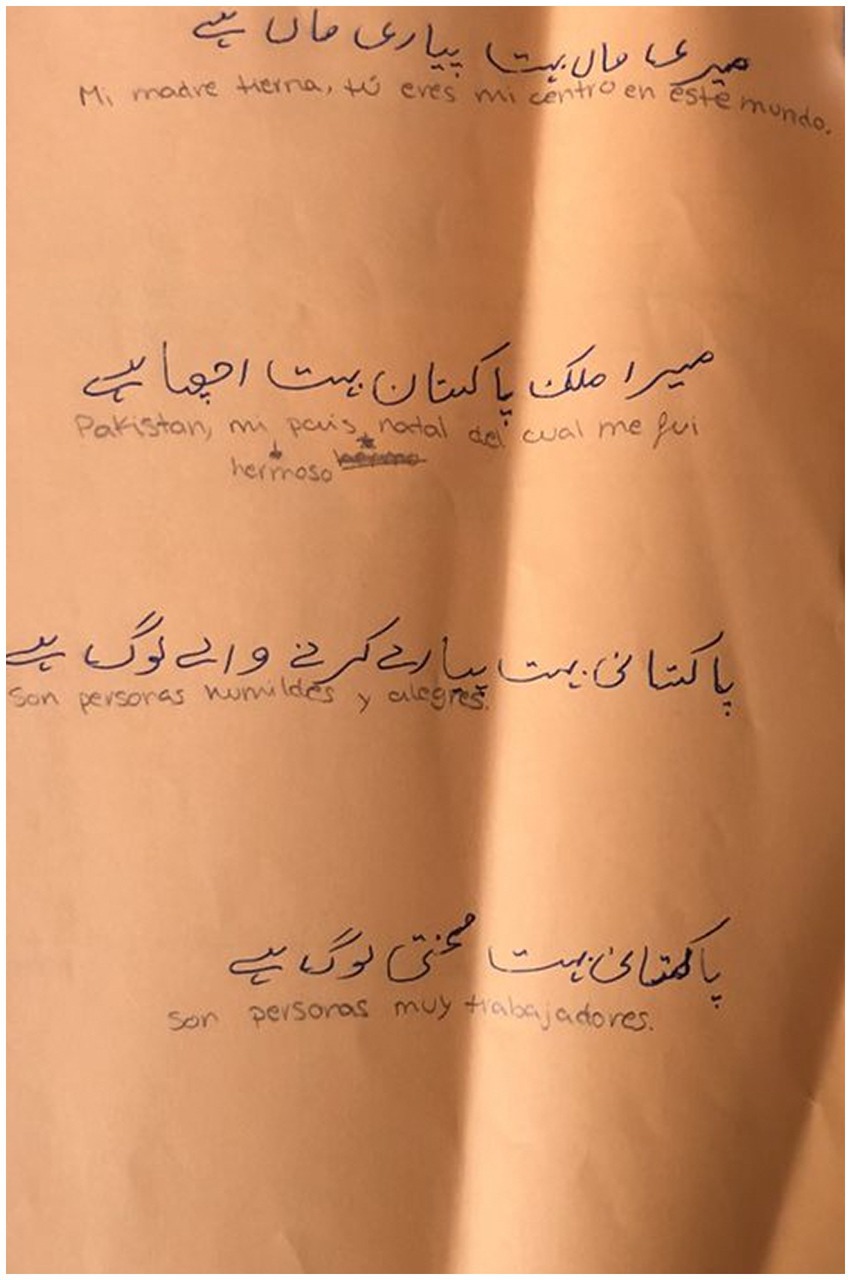 میری ماں بہت پیاری ماں ہے
Mi madre tierna, tú eres mi centro en este mundo.
میرا ملک پاکستان بہت اچھا ہے
Pakistan, mi país, natal del cual me fui
hermoso
پاکستانی بہت پیارے کرنے والے لوگ ہے
Son personas humildes y alegres.
پاکستانی بہت محنتی لوگ ہے
Son personas muy trabajadores.